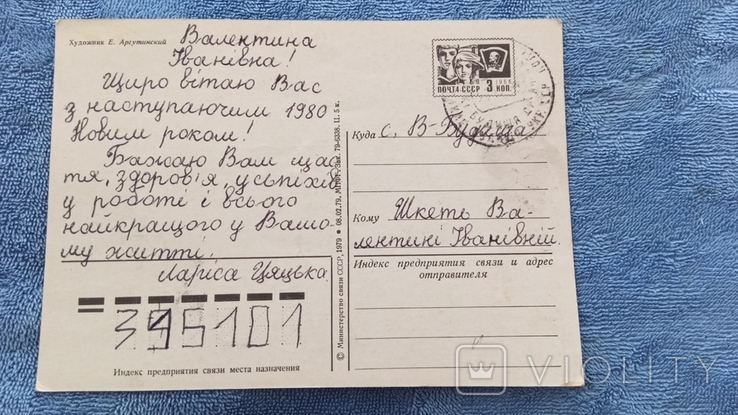 Художник Е. Аргутинский
Валентина
Іванівна!
Щиро вітаю Вас
з наступаючим 1980
Новим роком!
Бажаю Вам щас
тя, здоров'я, успіхів
у роботі і всього
найкращого у Вашо-
му житті.
Лариса Цяцька.
395101
Индекс предприятия связи места назначения
© Министерство связи СССР, 1979 ● 08.02.79, МПФГ. Зак. 79-6338. Ц. 5 к.
ПОЧТА СССР 3 КОП.
1966
Куда с. В-Будища
Кому Шкеть Ва-
лентині Іванівній.
Индекс предприятия связи и адрес
отправителя
VIOLITY